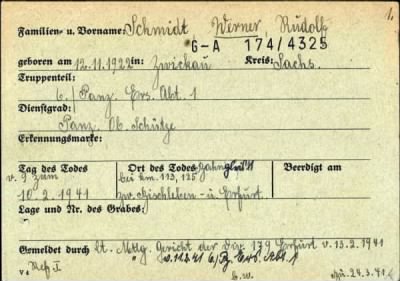 1.
Familien- u. Vorname: Schmidt Werner Rudolf
G-A 174/4325
geboren am 12.11.1922 in: Zwickau Kreis: Sachs.
Truppenteil:
6./ Panz. Ers. Abt. 1
Dienstgrad:
Panz. Ob. Schütze
Erkennungsmarke:
Tag des Todes Ort des Todes Bahngleis Beerdigt am
v. 9. zum bei km. 113,125
10.2.1941 zw. Bischleben - u. Erfurt.
Lage und Nr. des Grabes:
Gemeldet durch lt. Mttlg. Gericht der Div. 179 Erfurt v. 13.2.1941
v. Ref. I v. 11.2.41 6/Pz. Ers. Abt. 1
b.w. 24.3.41